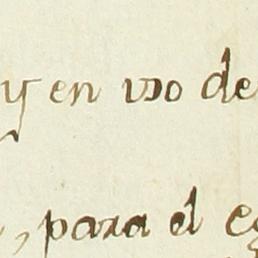 y en uso de
, para el